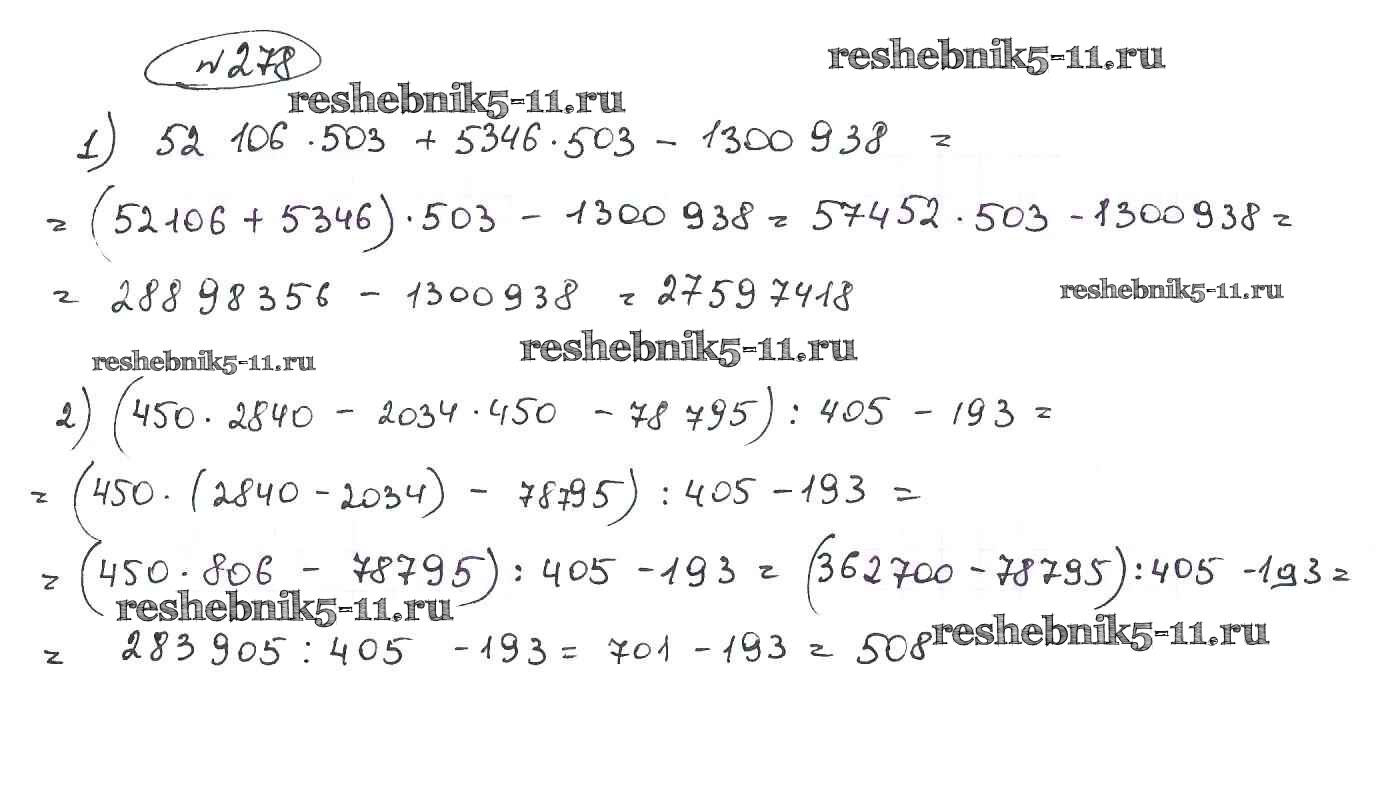 №278
reshebnik5-11.ru
reshebnik5-11.ru
1) 52 106 · 503 + 5346 · 503 - 1300 938 =
= (52106 + 5346) · 503 - 1300 938 = 57452 · 503 - 1300938 =
= 288 98 356 - 1300938 = 27597418
reshebnik5-11.ru
reshebnik5-11.ru
reshebnik5-11.ru
2) (450 · 2840 - 2034 · 450 - 78 795) : 405 - 193 =
= (450 · (2840 - 2034) - 78795) : 405 - 193 =
= (450 · 806 - 78795) : 405 - 193 = (362700 - 78795) : 405 - 193 =
reshebnik5-11.ru
reshebnik5-11.ru
= 283 905 : 405 - 193 = 701 - 193 = 508